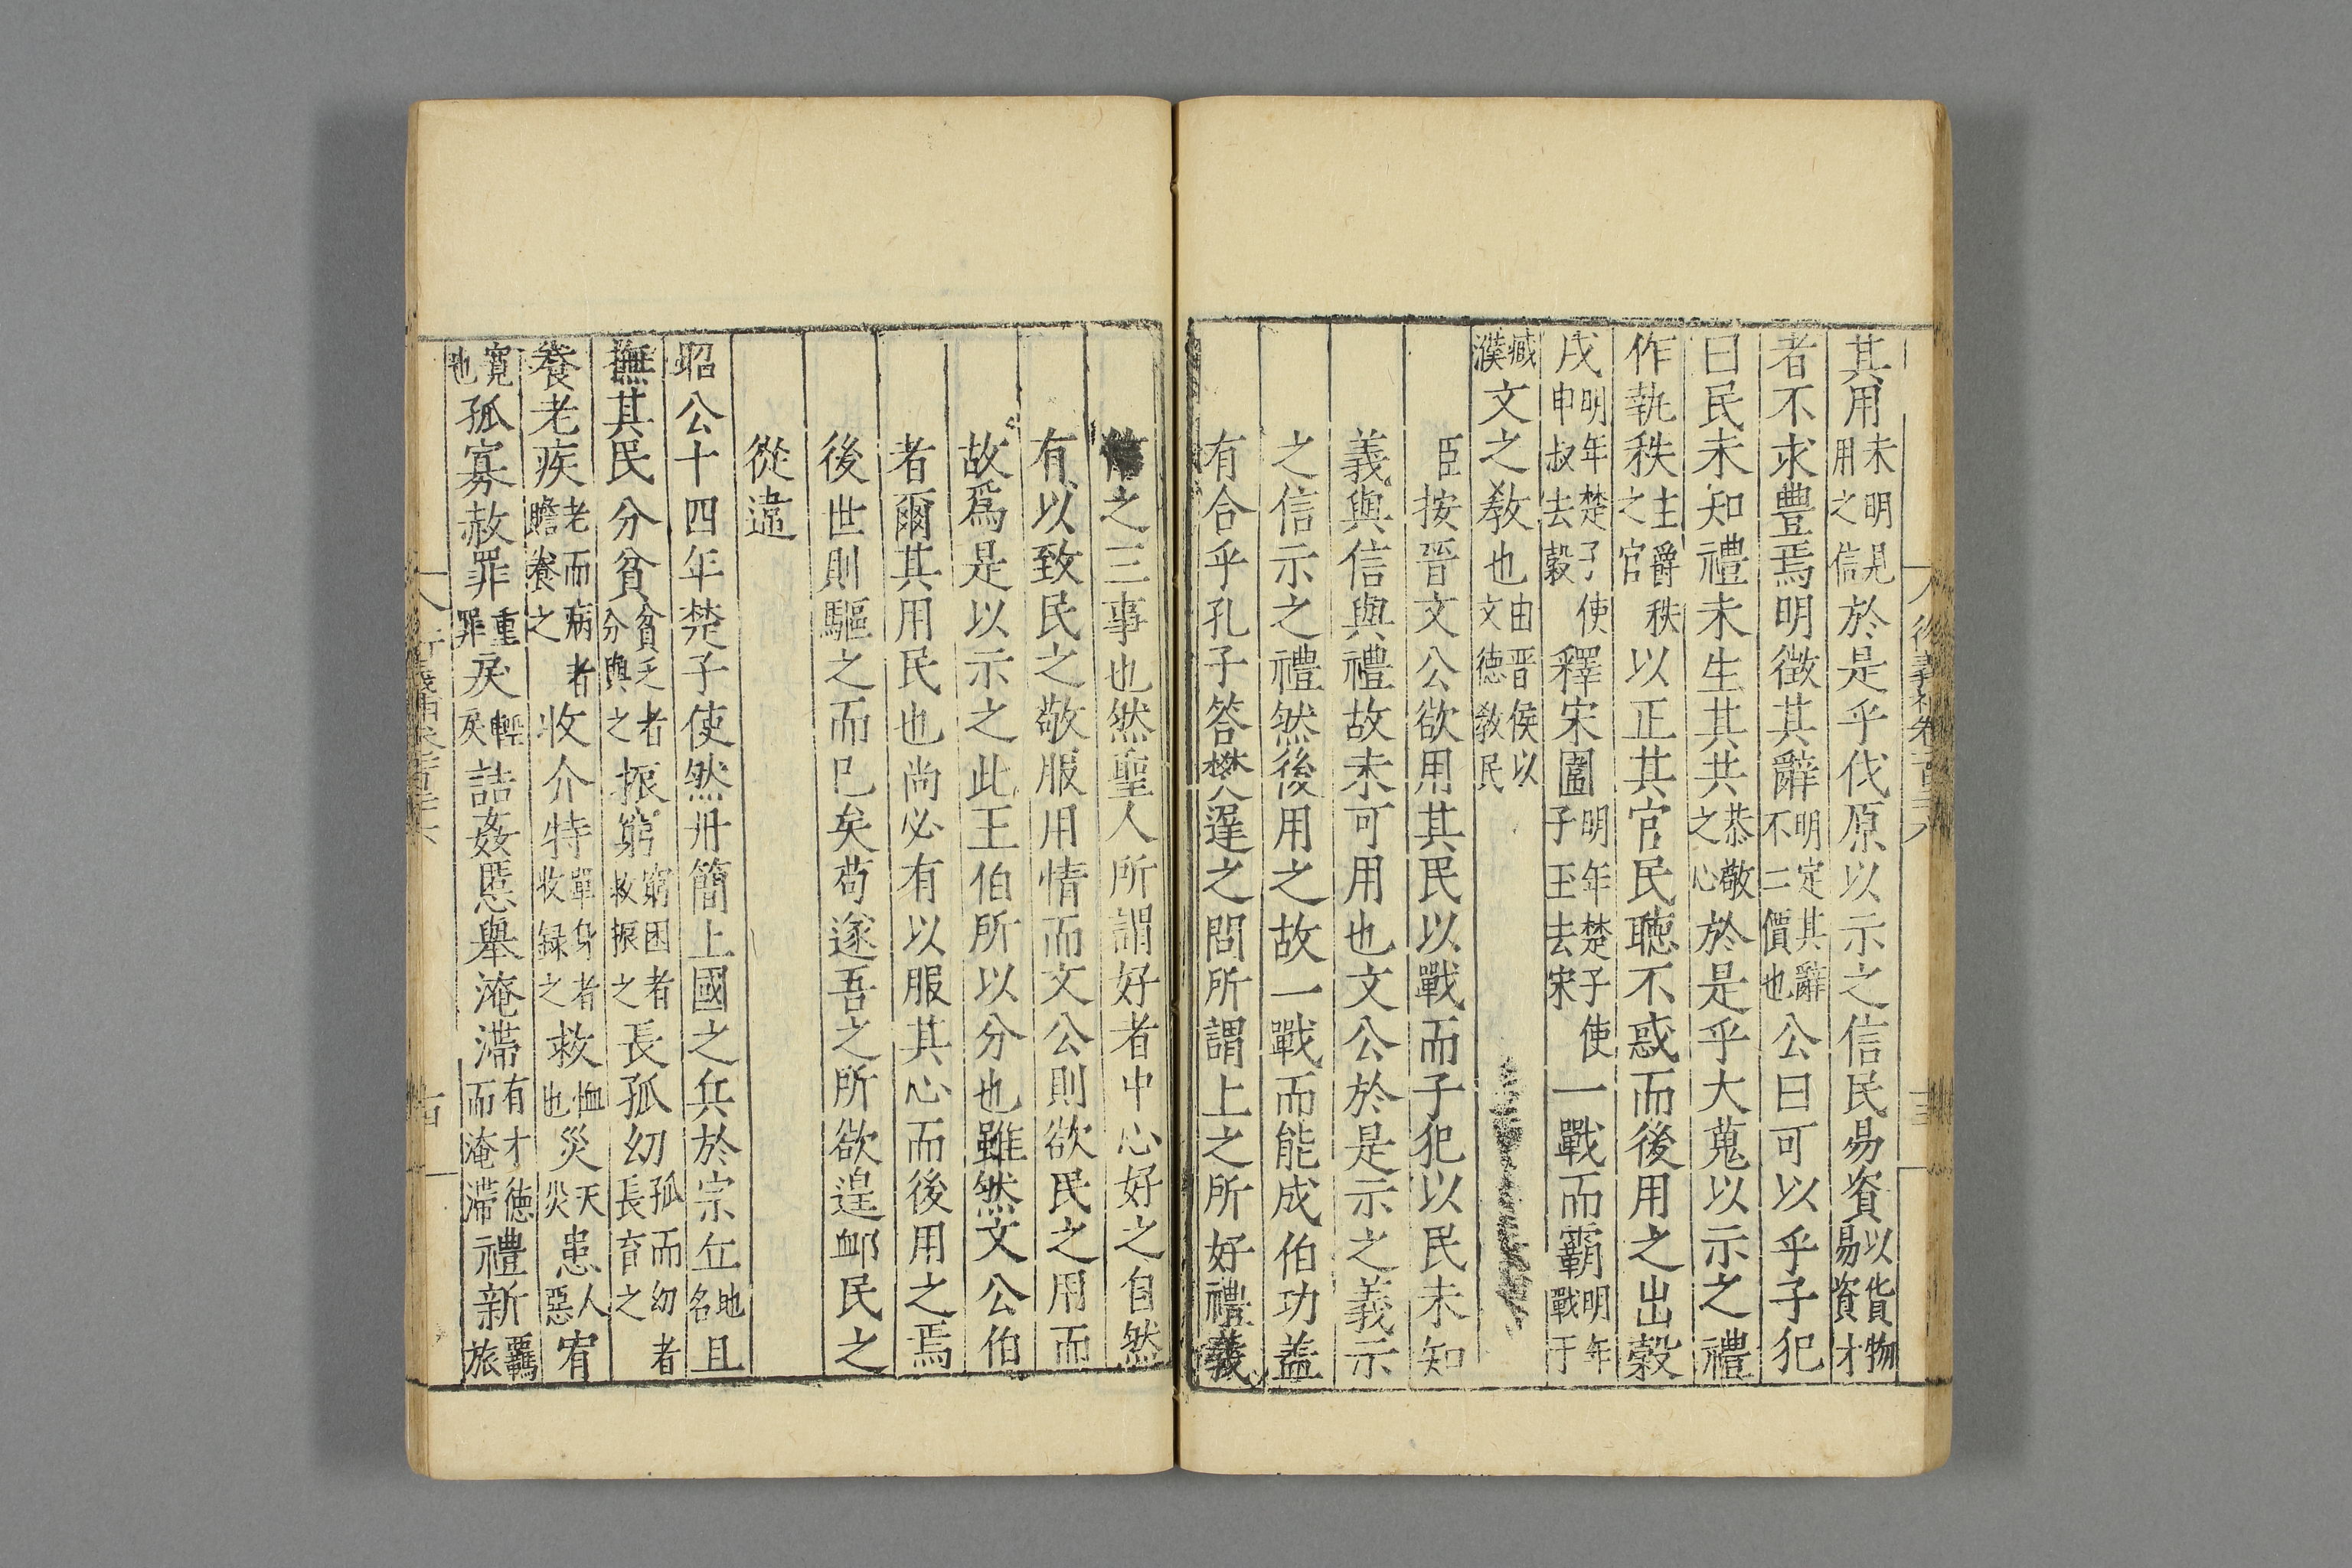 其用未明見用之信於是乎伐原以示之信民易資以貨物易資才
者不求豊焉明徵其辭明定其辭不二價也公曰可以乎子犯
曰民未知禮未生其共恭敬之心於是乎大蒐以示之禮
作執秩主爵秩之官以正其官民聽不惑而後用之出穀
戍明年楚子使申叔去穀釋宋圍明年楚子使子玉去宋一戰而霸明年戰于
城濮文之敎也由晋侯以文德敎民
臣按晉文公欲用其民以戰而子犯以民未知
義與信與禮故未可用也文公於是示之義示
之信示之禮然後用之故一戰而能成伯功葢
有合乎孔子答樊遲之問所謂上之所好禮義
之三事也然聖人所謂好者中心好之自然
有以致民之敬服用情而文公則欲民之用而
故爲是以示之此王伯所以分也雖然文公伯
者爾其用民也尚必有以服其心而後用之焉
後世則驅之而已矣苟遂吾之所欲遑卹民之
從違
昭公十四年楚子使然丹簡上國之兵於宗丘地名且
撫其民分貧貧乏者分與之振窮窮困者救振之長孤幼孤而幼者長育之
養老疾老而病者贍養之收介特單身者收録之救恤也災天災患人惡宥
寬也孤寡赦罪重罪戾輕戾詰姦慝舉淹滯有才德而淹滯禮新羈旅